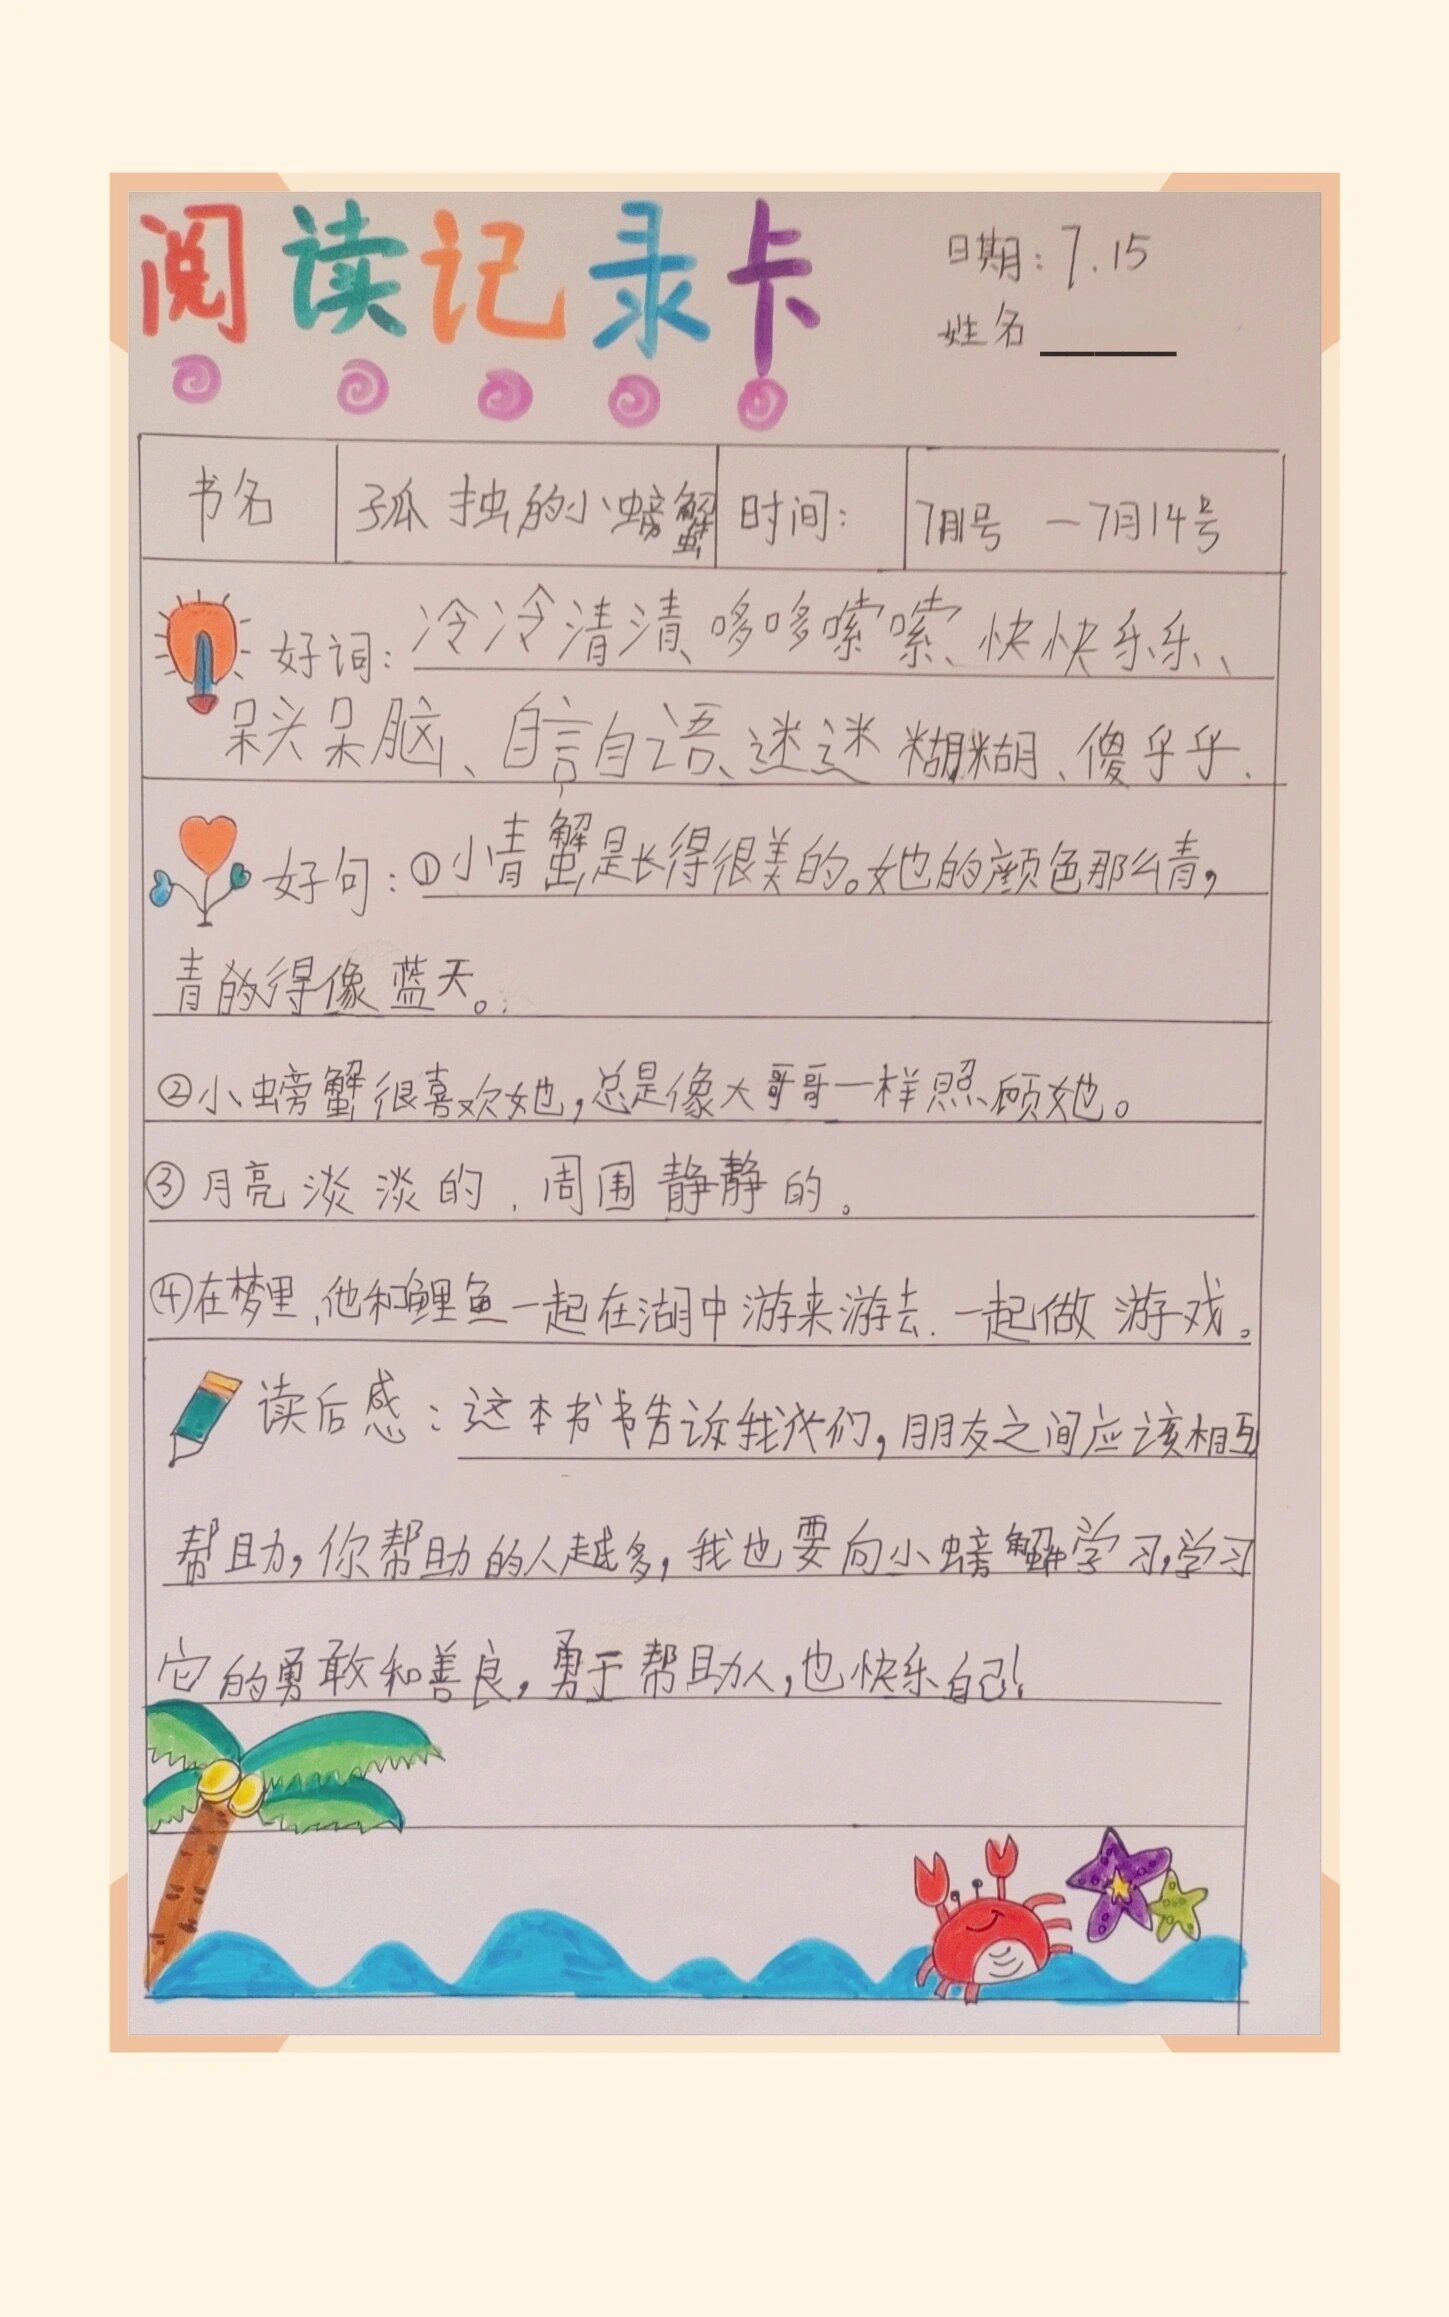 阅读记录卡
日期:7.15
姓名
书名 孤独的小螃蟹 时间: 7月1号 — 7月14号
好词: 冷冷清清、哆哆嗦嗦、快快乐乐、
呆头呆脑、自言自语、迷迷糊糊、傻乎乎、
好句:①小青蟹是长得很美的。她的颜色那么青,
青的得像蓝天。
②小螃蟹很喜欢她,总是像大哥哥一样照顾她。
③月亮淡淡的、周围静静的。
④在梦里、他和鲤鱼一起在湖中游来游去、一起做游戏。
读后感:这本书书告诉我我们,朋友之间应该相互
帮助,你帮助的人越多,我也要向小螃蟹学习,学习
它的勇敢和善良,勇于帮助人,也快乐自己!